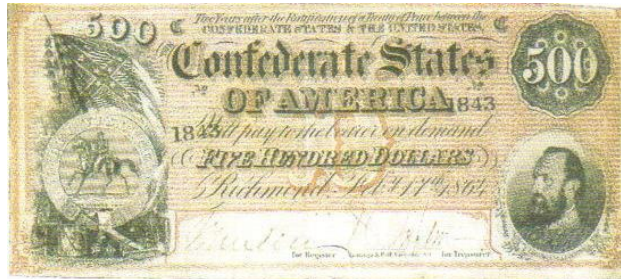 Two Years after the Ratification of a Treaty of Peace between the
CONFEDERATE STATES & THE UNITED STATES
500 C C
Confederate States 500
OF AMERICA 843
1843 Will pay to the bearer on demand
FIVE HUNDRED DOLLARS
Richmond, Feb. 17th 1864
for Register for Treasurer